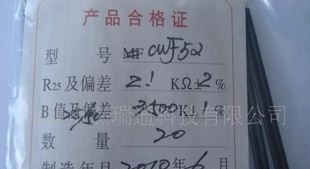 产品合格证
型号 MF CWF52
R25及偏差 2.1 KΩ±2%
B值及偏差 25/50 3500K±1%
数量 20
制造年月 2020年6月
瑞迪科技有限公司